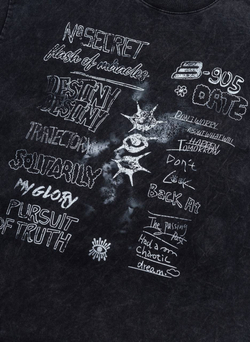 No SECRET
flash of miracles
DESTINY
DESTINY
TRAJECTORY
SOLITARILY
MY GLORY
PURSUIT
OF TRUTH
B-905
DATE
Don't worry
HAPPEN
TOMORROW
Don't
Look
BACK At
The Passing
Had a
Chaotic
dream